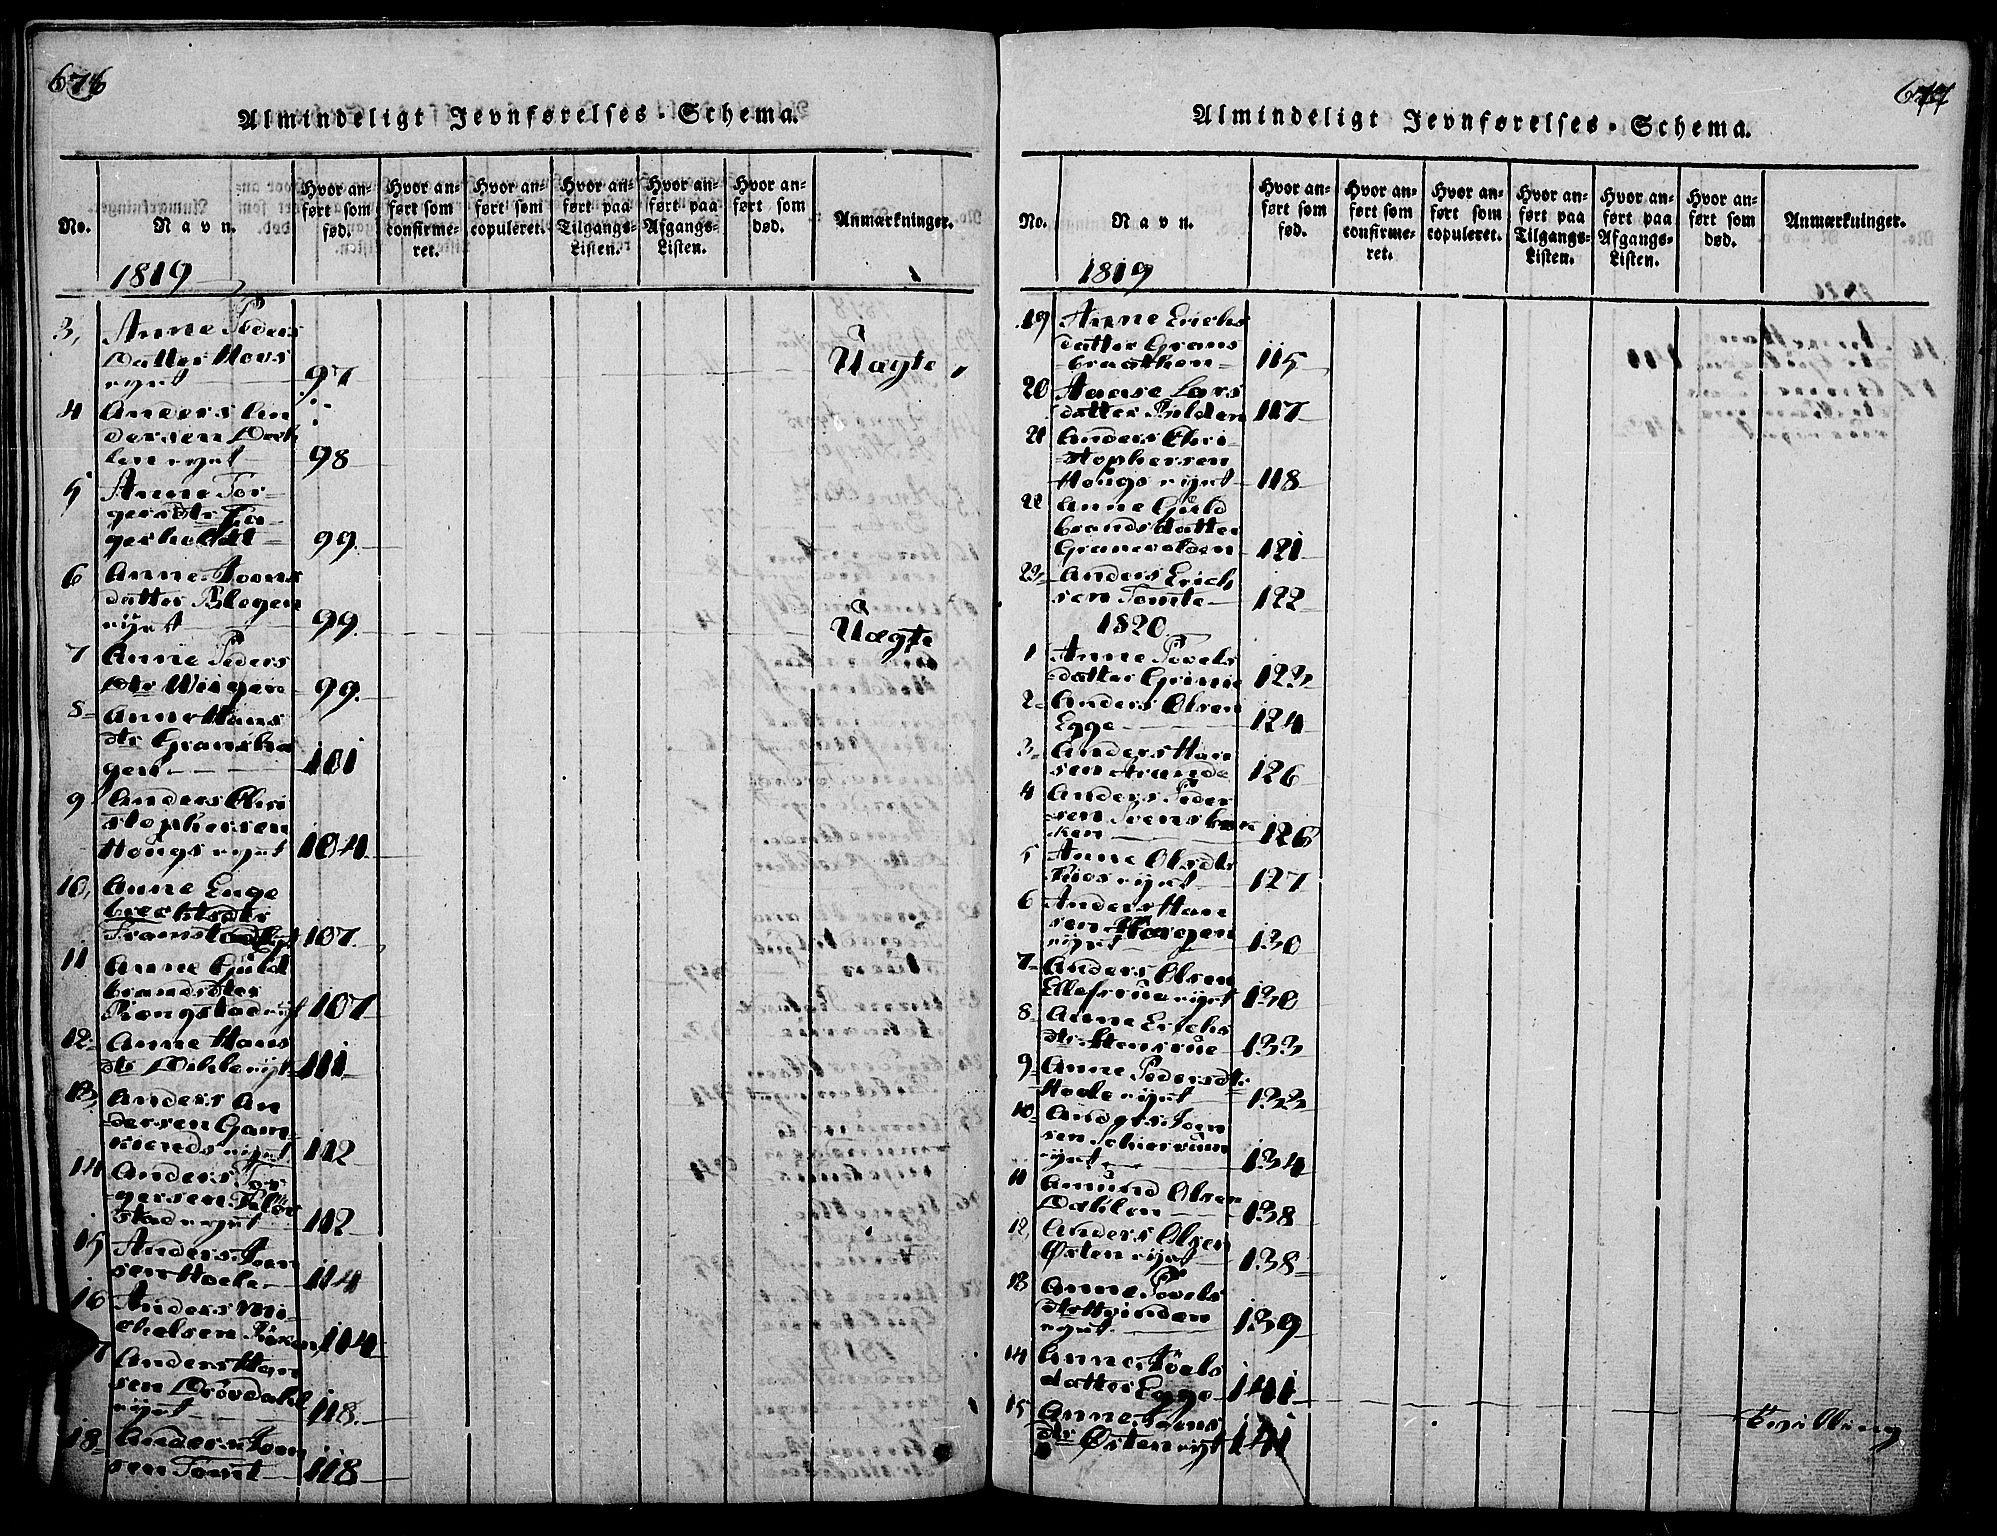 676
Almindeligt Jevnførelses-Schema.
No. Navn. Hvor anført som fød. Hvor anført som confirmeret. Hvor anført som copuleret. Hvor anført paa Tilgangs-Listen. Hvor anført paa Afgangs-Listen. Hvor anført som død. Anmærkninger.
1819
3, Anne Peders
Datter Hovs
eyet 97 Uægte
4 Anders An
dersen
eyet 98
5 Anne Tor-
gersdtr Fa-
gerholdt 99
6 Anne Joens
datter Blegen
eyet 99 Uægte
7 Anne Peders
dtr Wiigen 99
8 Anne Hans
dtr Gransha
gen 101
9 Anders Chri
stophersen
Hougs eyet 104
10, Anne Enge
brechtsdtr
Framstad 107
11 Anne Guld
brandsdter
Kongstad 107
12 Anne Hans
dtr Dehle eyet 111
13, Anders An
dersen Gam-
eyet 112
14 Anders Tor
gersen
stad eyet 112
15 Anders Joen
sen Hoele 114
16 Anders Mi-
chelsen 114
17 Anders Han
sen Drövdahl
eyet 118
18 Anders Joen
sen Tomt 118
677
Almindeligt Jevnførelses-Schema.
No. Navn. Hvor anført som fød. Hvor anført som confirmeret. Hvor anført som copuleret. Hvor anført paa Tilgangs-Listen. Hvor anført paa Afgangs-Listen. Hvor anført som død. Anmærkninger.
1819
19 Anne Erichs
datter Grans
braathen 115
20 Aaase Lars
datter Bilden 117
21 Anders Chri-
stophersen
Hougs eyet 118
22 Anne Guld
brands datter
Granevolden 121
23 Anders Erich
sen Tomte 122
1820
1 Anne Povels
datter Grinie 123
2 Anders Olsen
Egge 124
3 Anders Han
sen Strande 126
4 Anders Peder
sen Svensbak
ken 126
5 Anne Olsdtr
eyet 127
6 Anders Han
sen Horgen
eyet 130
7 Anders Olsen
Ellefsrue eyet 130
8 Anne Erichs
dtr Stensrue 133
9 Anne Pedersdtr
Hoele eyet 133
10 Anders Joen
sen Schierrum
eyet 134
11 Amund Olsen
Dahlen 138
12, Anders Olsen
Østen eyet 138
13 Anne Povels
dtr Hvinden
eyet 139
14 Anne Povels
datter Egge 141
15 Anne Joens
dtr Østen eyet 141 Tvilling